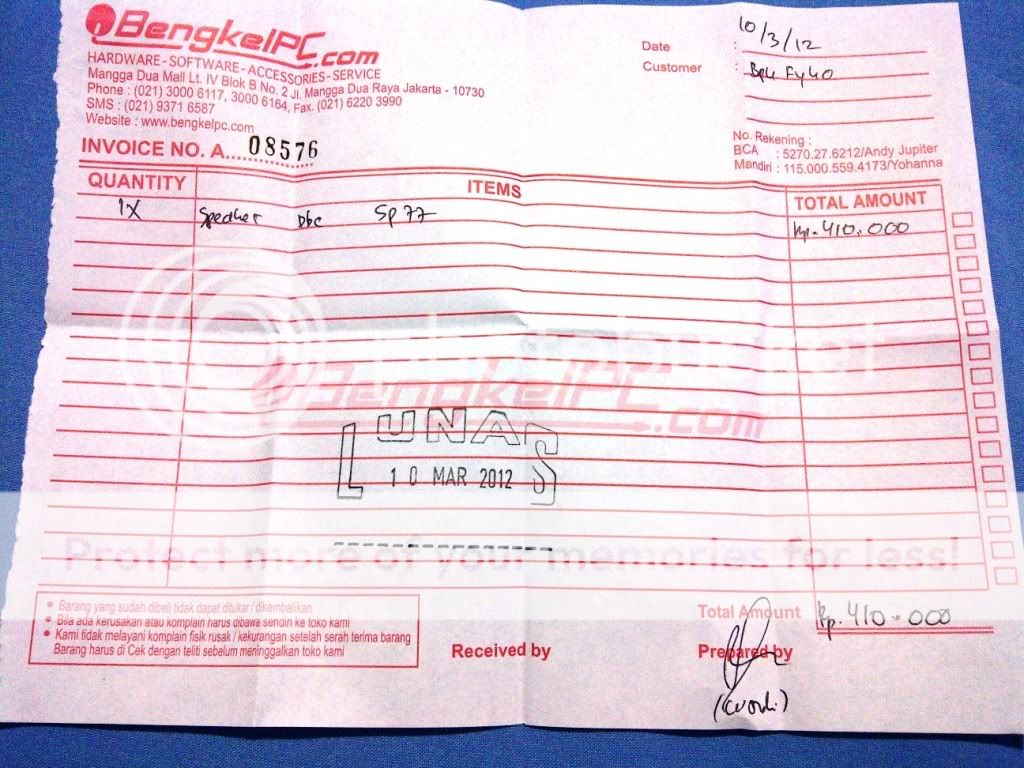 BengkelPC.com
HARDWARE - SOFTWARE - ACCESSORIES - SERVICE
Mangga Dua Mall Lt. IV Blok B No. 2 Jl. Mangga Dua Raya Jakarta - 10730
Phone : (021) 3000 6117, 3000 6164, Fax. (021) 6220 3990
SMS : (021) 9371 6587
Website : www.bengkelpc.com
INVOICE NO. A.... 08576
Date : 10/3/12
Customer :
No. Rekening :
BCA : 5270.27.6212/Andy Jupiter
Mandiri : 115.000.559.4173/Yohanna
QUANTITY ITEMS TOTAL AMOUNT
1X Speaker Dbe Sp 77 Rp. 410.000
BengkelPC.com
LUNAS
10 MAR 2012
Protect more of your memories for less!
• Barang yang sudah dibeli tidak dapat ditukar / dikembalikan
• Bila ada kerusakan atau komplain harus dibawa sendiri ke toko kami
• Kami tidak melayani komplain fisik rusak / kekurangan setelah serah terima barang
Barang harus di Cek dengan teliti sebelum meninggalkan toko kami
Total Amount Rp. 410.000
Received by Prepared by